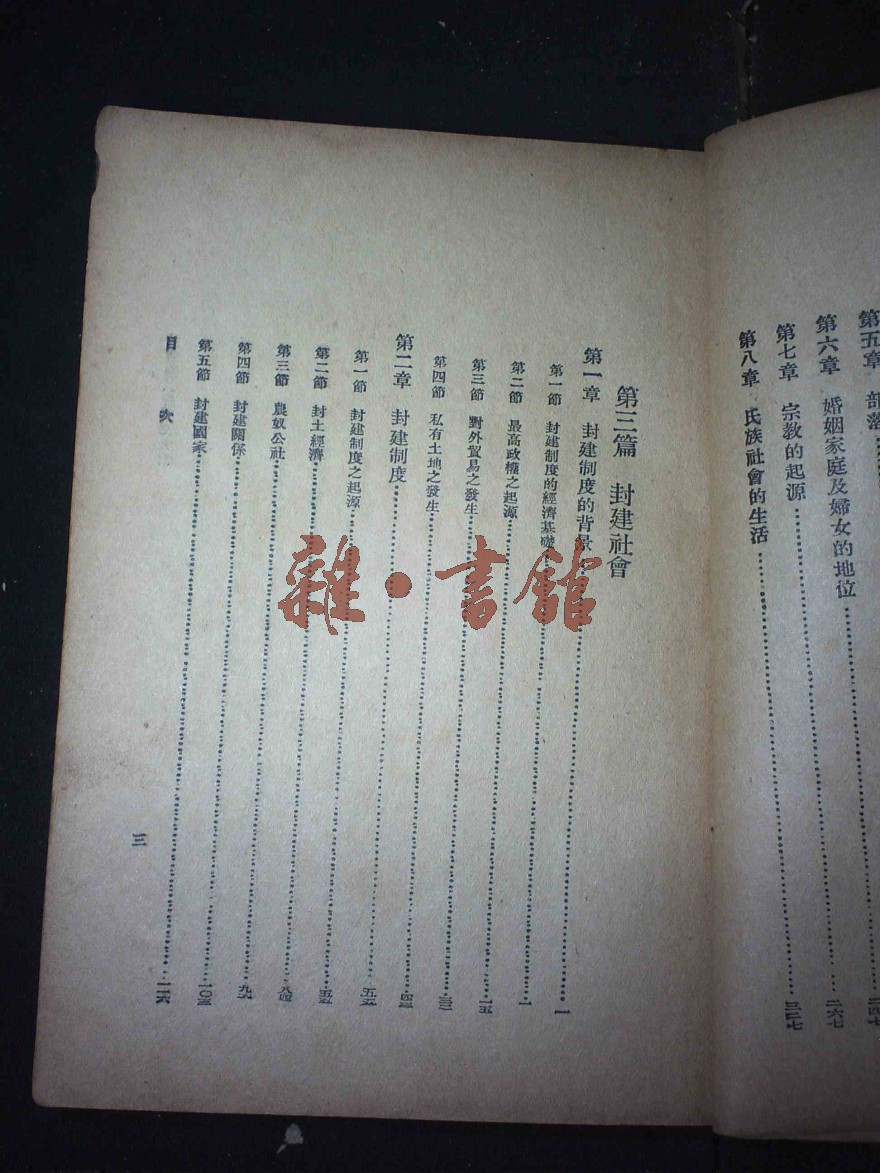 第五章 部落……
第六章 婚姻家庭及婦女的地位……二六七
第七章 宗教的起源……
第八章 氏族社會的生活……
第三篇 封建社會
第一章 封建制度的背景……一
第一節 封建制度的經濟基礎……一
第二節 最高政權之起源……一五
第三節 對外貿易之發生……
第四節 私有土地之發生……四三
第二章 封建制度……五五
第一節 封建制度之起源……五五
第二節 封土經濟……八四
第三節 農奴公社……九六
第四節 封建關係……一〇三
第五節 封建國家……一二六
目次
三
雜·書館